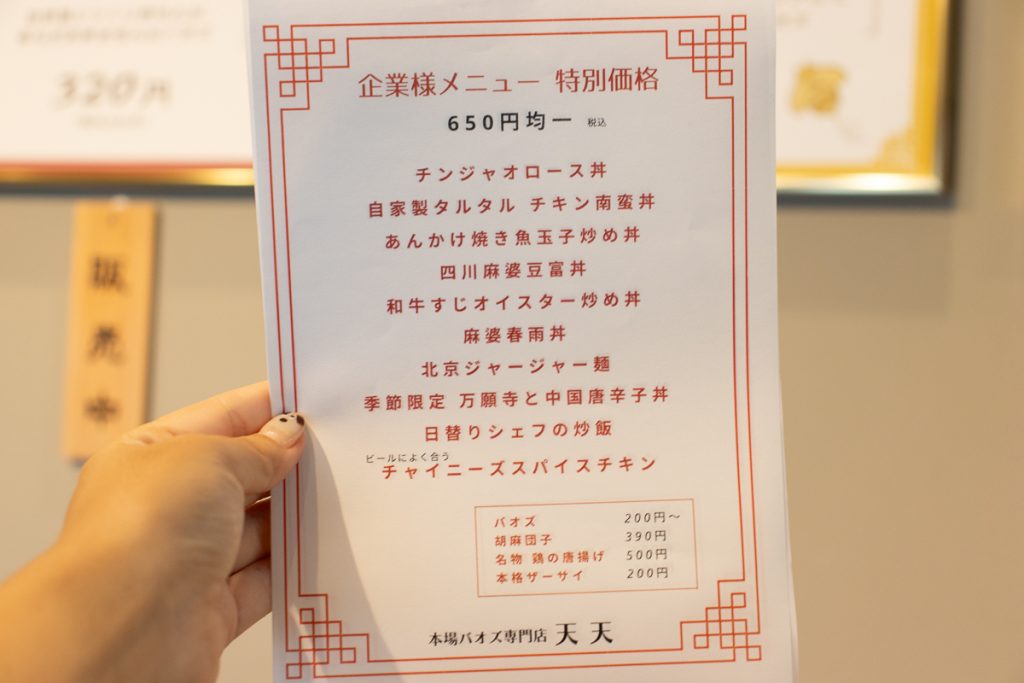 320円
販売中
企業様メニュー 特別価格
650円均一 税込
チンジャオロース丼
自家製タルタル チキン南蛮丼
あんかけ焼き魚玉子炒め丼
四川麻婆豆富丼
和牛すじオイスター炒め丼
麻婆春雨丼
北京ジャージャー麺
季節限定 万願寺と中国唐辛子丼
日替りシェフの炒飯
ビールによく合う
チャイニーズスパイスチキン
パオズ 200円～
胡麻団子 390円
名物 鶏の唐揚げ 500円
本格ザーサイ 200円
本場パオズ専門店 天天